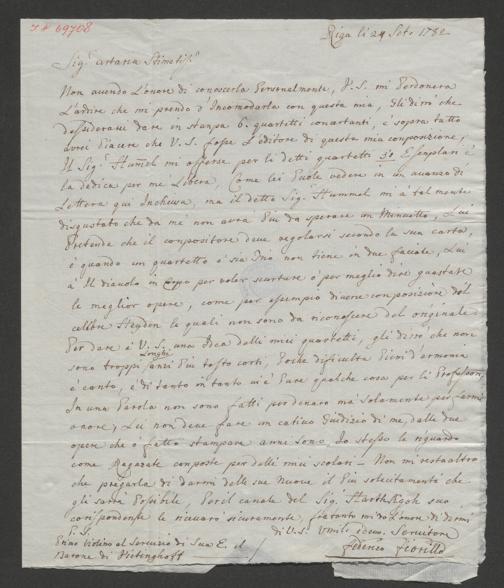 I N 69708
Riga li 24 Sete 1782
Sig.r Artaria Stimatiss.o
Non avendo L'onore di conoscerla Personalmente, V.S. mi Perdonera
L'ardire che mi prendo d'Incomodarla con questa mia, Gli dirò che
desiderarei dare in stanpa 6. quartetti concertanti, e sopra tutto
avrei Piacere che V.S. fosse L'editore di questa mia conposizione,
Il Sig.r Hummel mi offerse per li detti quartetti Esenplari è
la dedica per me Libera, Come lei Puole vedere in un avanzo di
Lettera qui Inchiusa, ma il detto Sig.r Hummel mi a tal mente
disgustato che da me non avra Piu da sperare un Minuetto, Lui
Pretende che il conpositore deve regolarsi secondo la sua carta,
è quando un quartetto ò sia Trio non tiene in due faciate, Lui
à Il diavolo in Corpo per voler scurtare ò per meglio dire guastare
le meglior opere, come per esempio diverse conposizione del
celbre Haydon le quali non sono da riconoscere del originale
Per dare à V.S. una Idea delli miei quartetti, gli dirrò che non
sono troppi Longhi anzi Piu tosto corti, Poche dificulta Pieni d'armonia
è canto, è di tanto in tanto vi è Pure qualche cosa per li Professori,
In una Parola non sono fatti per denaro ma solamente per farmi
onore, Lei non deve fare un cativo Giudizio di me, dalle due
opere che ò fatto stampare anni sono, Io stesso le riguardo
come Ragazate conposte per delli miei scolari - Non mi resta altro
che pregarla di darmi delle sue Nuove il Piu solecitamente che
gli sarrà Possibile Per il canale del Sig.r HarthKnoh suo
corispondente le ricevero sicuramente, fra tanto mi do L'onore di dirmi
di V.S. Umile devo. Servitore
P.S.
Primo violino al Servizio di Sua E. il
Barone di Vietinghoff
Federico Fiorillo